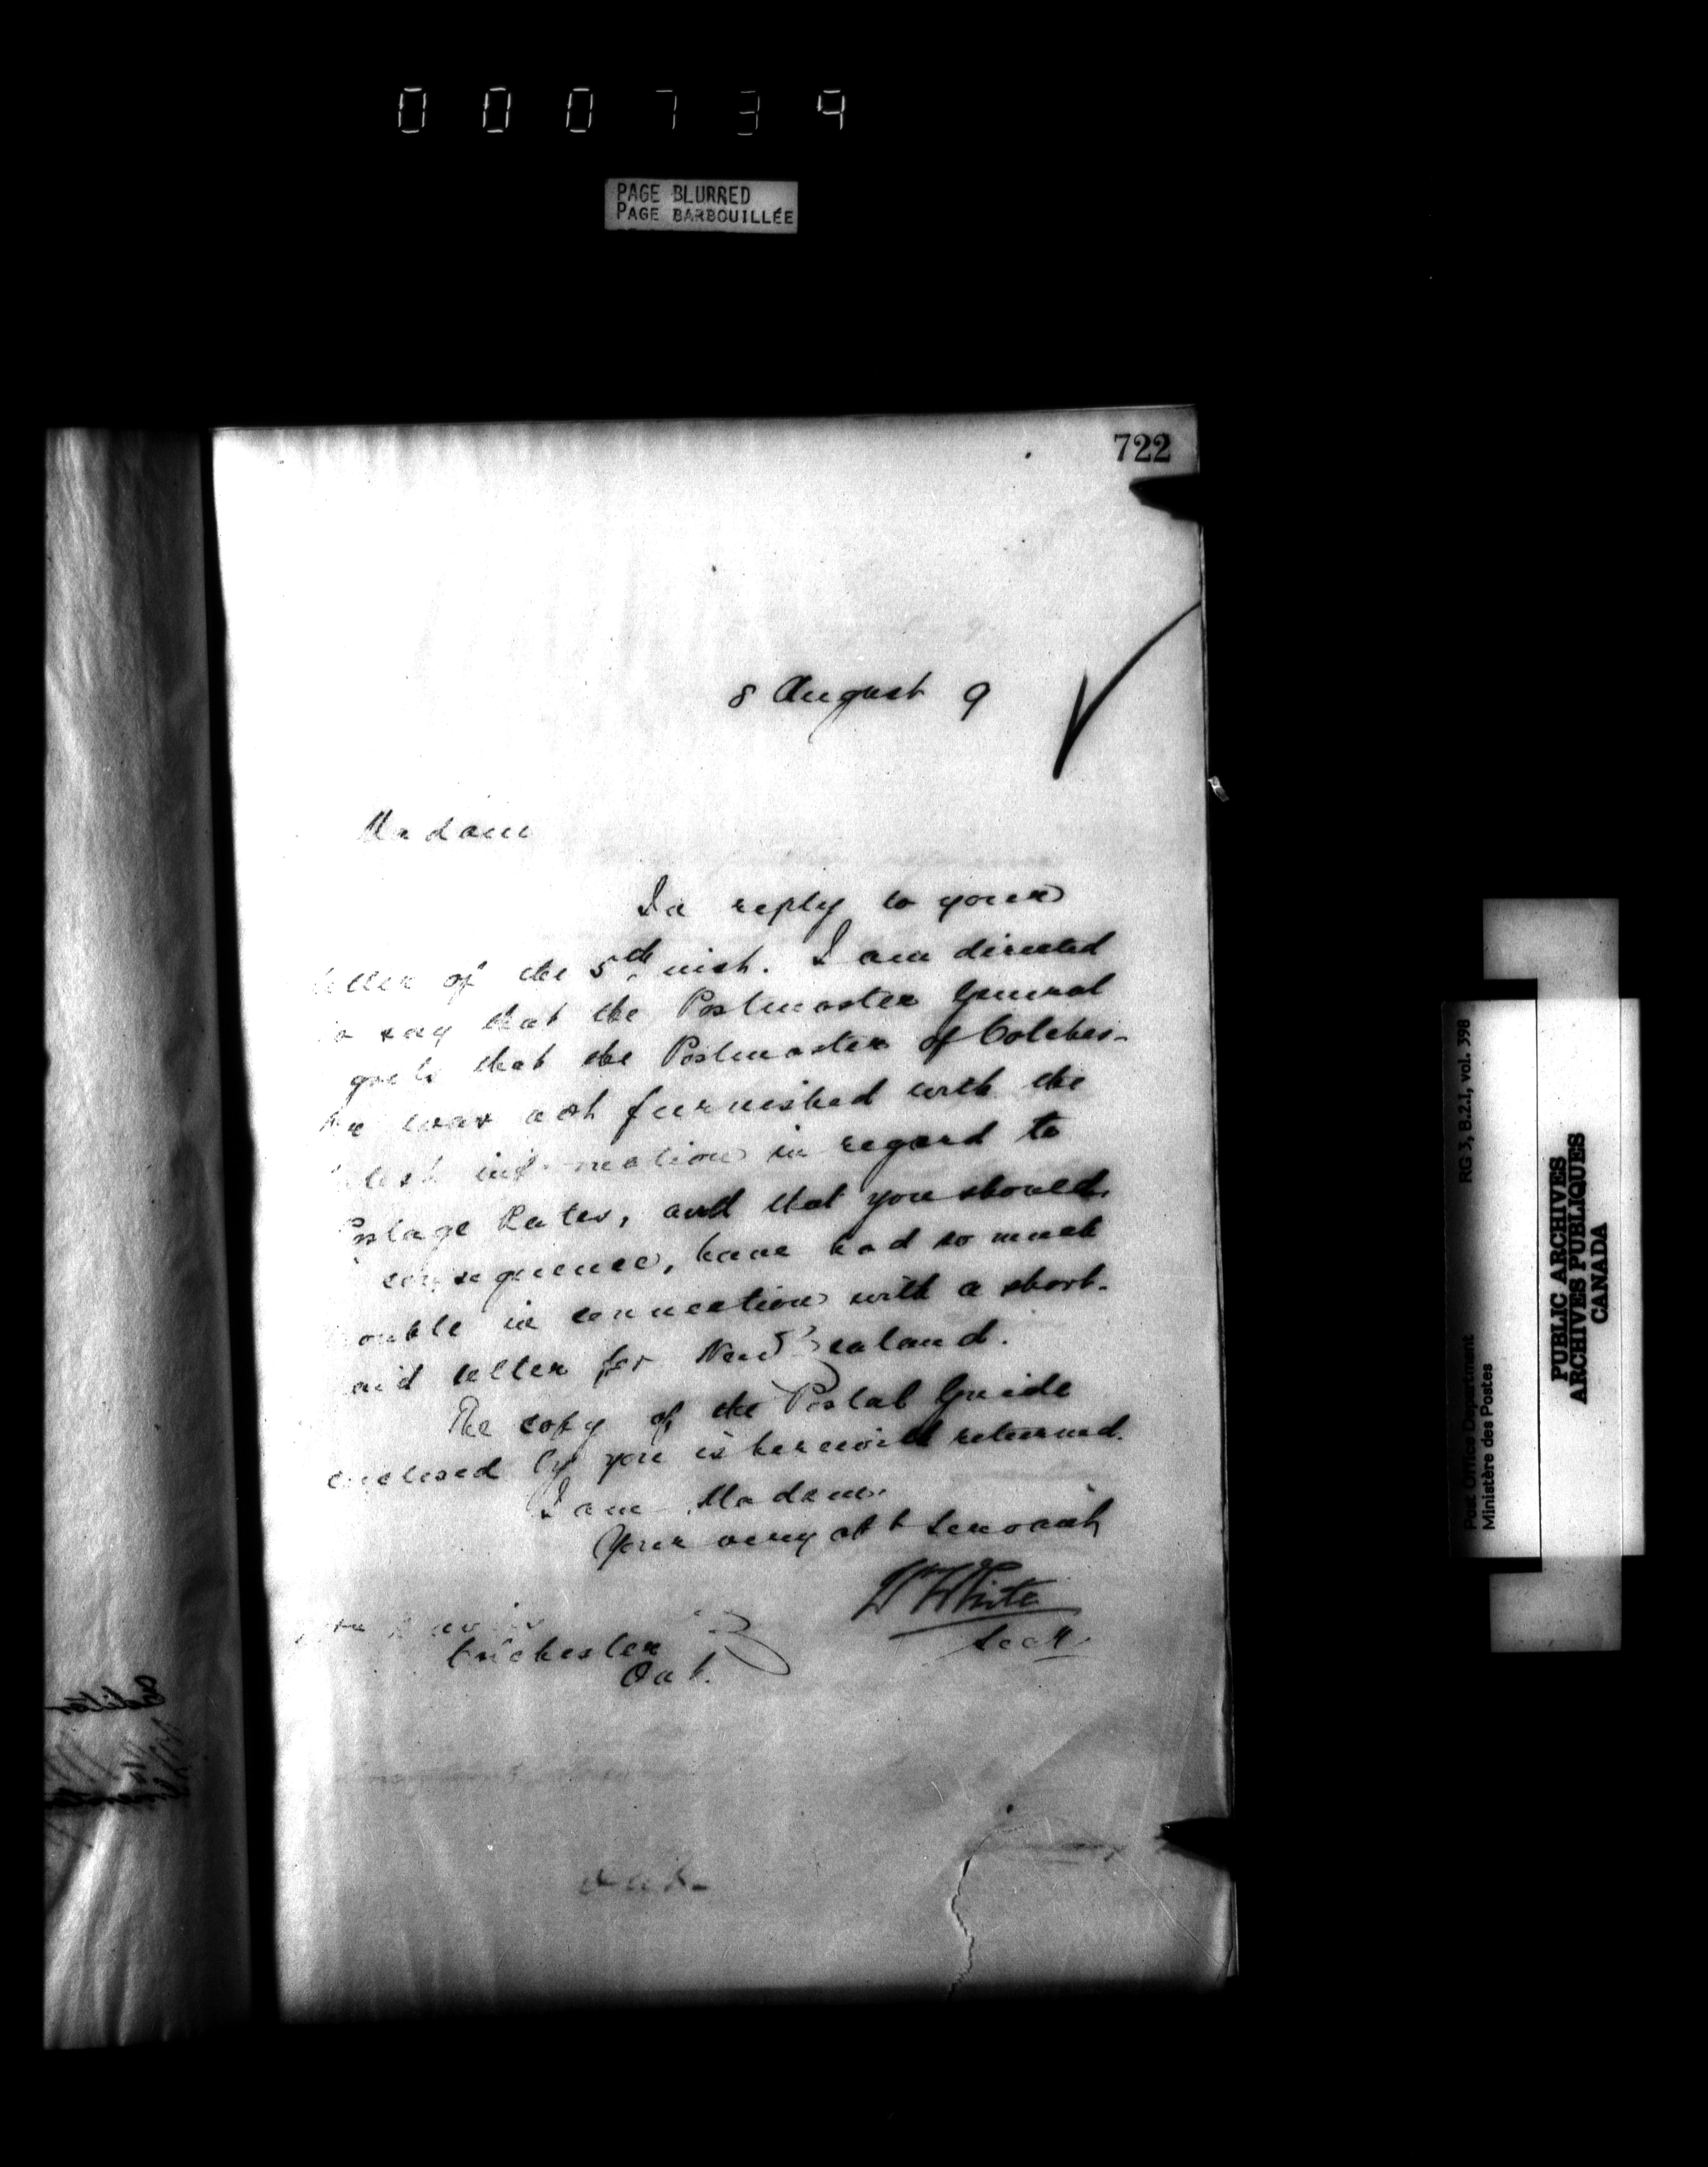 000739
PAGE BLURRED
PAGE BARBOUILLÉE
722
8 August 9
Madam
In reply to your
letter of the 5th inst. I am directed
to say that the Postmaster General
grets that the Postmaster of Colches-
ter was not furnished with the
latest information in regard to
Postage Rates, and that you should,
consequence, have had so much
ouble in connection with a short-
aid letter for New Zealand.
The copy of the Postal Guide
enclosed by you is herewith returned.
I am Madam,
Your very obt Servant
Wm White
Secy
Colchester
Ont.
Post Office Department RG 3, B.2.I, vol. 398
Ministère des Postes
PUBLIC ARCHIVES
ARCHIVES PUBLIQUES
CANADA